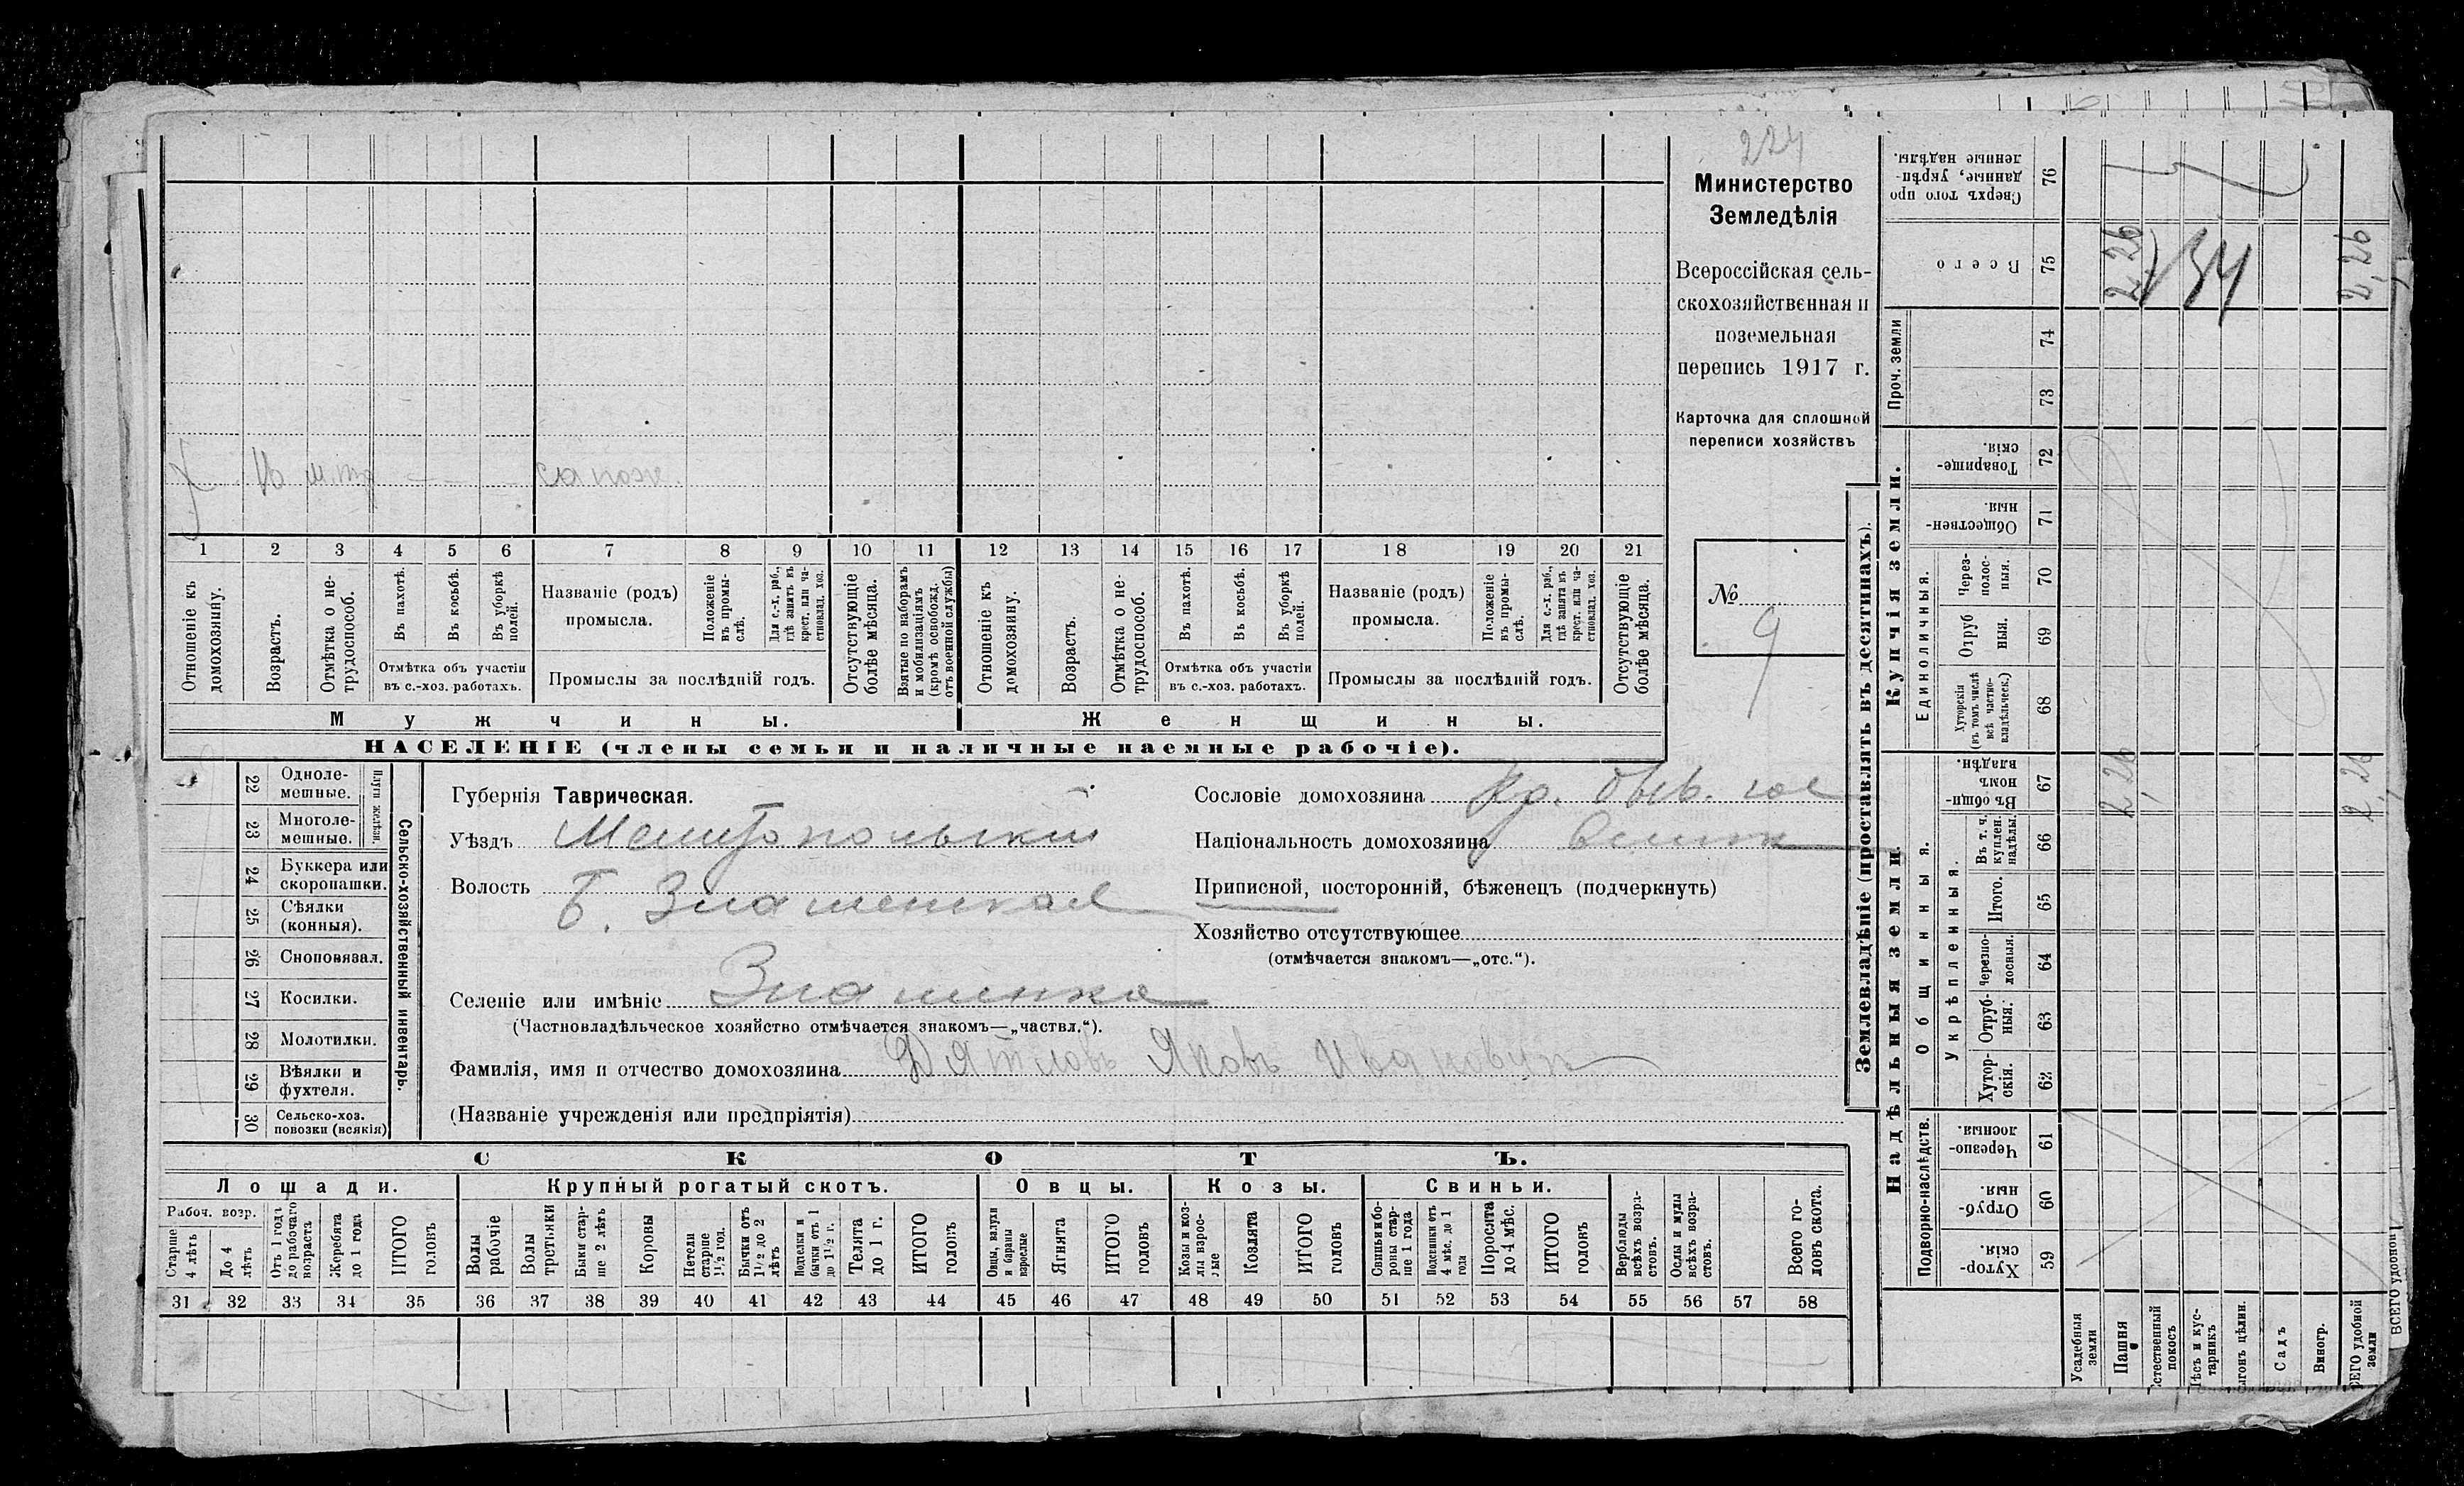 224
Министерство
Земледѣлія
Всероссійская сель-
скохозяйственная и
поземельная
перепись 1917 г.
Карточка для сплошной
переписи хозяйствъ
№
9
сапож.
1 2 3 4 5 6 7 8 9 10 11 12 13 14 15 16 17 18 19 20 21
Отношеніе къ домохозяину.
Возрастъ.
Отмѣтка о не-трудоспособ.
Въ пахотѣ.
Въ косьбѣ.
Въ уборкѣ полей.
Отмѣтка объ участіи
въ с.-хоз. работахъ.
Названіе (родъ)
промысла.
Положеніе въ промы-слѣ.
Для с.-х. раб., гдѣ занятъ въ крест. или ча-стновлад. хоз.
Промыслы за послѣдній годъ.
Отсутствующіе болѣе мѣсяца.
Взятые по наборамъ и мобилизаціямъ (кромѣ освобожд. отъ военной службы)
Отношеніе къ домохозяину.
Возрастъ.
Отмѣтка о не-трудоспособ.
Въ пахотѣ.
Въ косьбѣ.
Въ уборкѣ полей.
Отмѣтка объ участіи
въ с.-хоз. работахъ.
Названіе (родъ)
промысла.
Положеніе въ промы-слѣ.
Для с.-х. раб., гдѣ занята въ крест. или ча-стновлад. хоз.
Промыслы за послѣдній годъ.
Отсутствующіе болѣе мѣсяца.
Мужчины.
Женщины.
НАСЕЛЕНІЕ (члены семьи и наличные наемные рабочіе).
22 Одноле-мешные.
23 Многоле-мешные.
Плуги желѣзн.
24 Буккера или скоропашки.
25 Сѣялки (конныя).
26 Сноповязал.
27 Косилки.
28 Молотилки.
29 Вѣялки и фухтеля.
30 Сельско-хоз. повозки (всякія)
Сельско-хозяйственный инвентарь.
Губернія Таврическая.
Уѣздъ Мелитопольскій
Волость Б. Знаменская
Селеніе или имѣніе Знаменка
(Частновладѣльческое хозяйство отмѣчается знакомъ—„частвл.“).
Фамилія, имя и отчество домохозяина Дятловъ Яковъ Ивановичъ
(Названіе учрежденія или предпріятія)
Сословіе домохозяина кр. быв. гос
Національность домохозяина велик
Приписной, посторонній, бѣженецъ (подчеркнуть)
Хозяйство отсутствующее
(отмѣчается знакомъ—„отс.“).
СКОТЪ.
Лошади.
Крупный рогатый скотъ.
Овцы.
Козы.
Свиньи.
Рабоч. возр.
Старше 4 лѣтъ
До 4 лѣтъ
Отъ 1 года до рабочаго возраста
Жеребята до 1 года
ИТОГО головъ
Волы рабочіе
Волы третьяки
Быки стар-ше 2 лѣтъ
Коровы
Нетели старше 1½ год.
Бычки отъ 1½ до 2 лѣтъ
Подтелки и бычки отъ 1 до 1½ г.
Телята до 1 г.
ИТОГО головъ
Овцы, валухи и бараны взрослые
Ягнята
ИТОГО головъ
Козы и коз-лы взрос-лые
Козлята
ИТОГО головъ
Свиньи и бо-ровы стар-ше 1 года
Подсвинки отъ 4 мѣс. до 1 года
Поросята до 4 мѣс.
ИТОГО головъ
Верблюды всѣхъ возра-стовъ.
Ослы и мулы всѣхъ возра-стовъ.
Всего го-ловъ скота.
31 32 33 34 35 36 37 38 39 40 41 42 43 44 45 46 47 48 49 50 51 52 53 54 55 56 57 58
Землевладѣніе (проставлять въ десятинахъ).
Надѣльныя земли.
Купчія земли.
Проч. земли
Подворно-наслѣдств.
Общинныя.
Укрѣпленныя.
Единоличныя.
Хутор-скія. 59
Отруб-ныя. 60
Черезпо-лосныя. 61
Хутор-скія. 62
Отруб-ныя. 63
Черезпо-лосныя. 64
Итого. 65
Въ т. ч. куплен. надѣлы. 66
Въ общин-номъ владѣн. 67
Хуторскія (въ томъ числѣ всѣ частно-владѣльческ.) 68
Отруб ныя. 69
Через-полос-ныя. 70
Обществен-ныя. 71
Товарище-скія. 72
73
74
Всего 75
Сверхъ того про данные, укрѣп-ленные надѣлы. 76
Усадебныя земли
Пашня 2,26 2,26
Естественный покосъ
Лѣсъ и кус-тарникъ
Выгонъ цѣлин.
Садъ
Виногр.
ВСЕГО удобной земли 2,26 2,26
34
ВСЕГО удобной